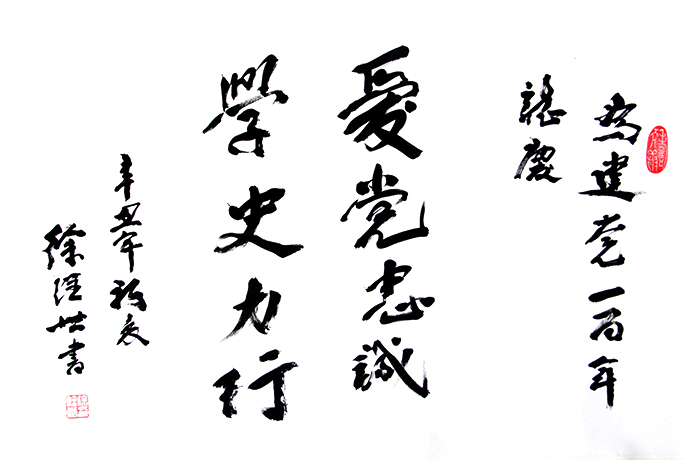 為建党一百年
誌慶
愛党忠誠
學史力行
辛丑年初夏
徐經世書